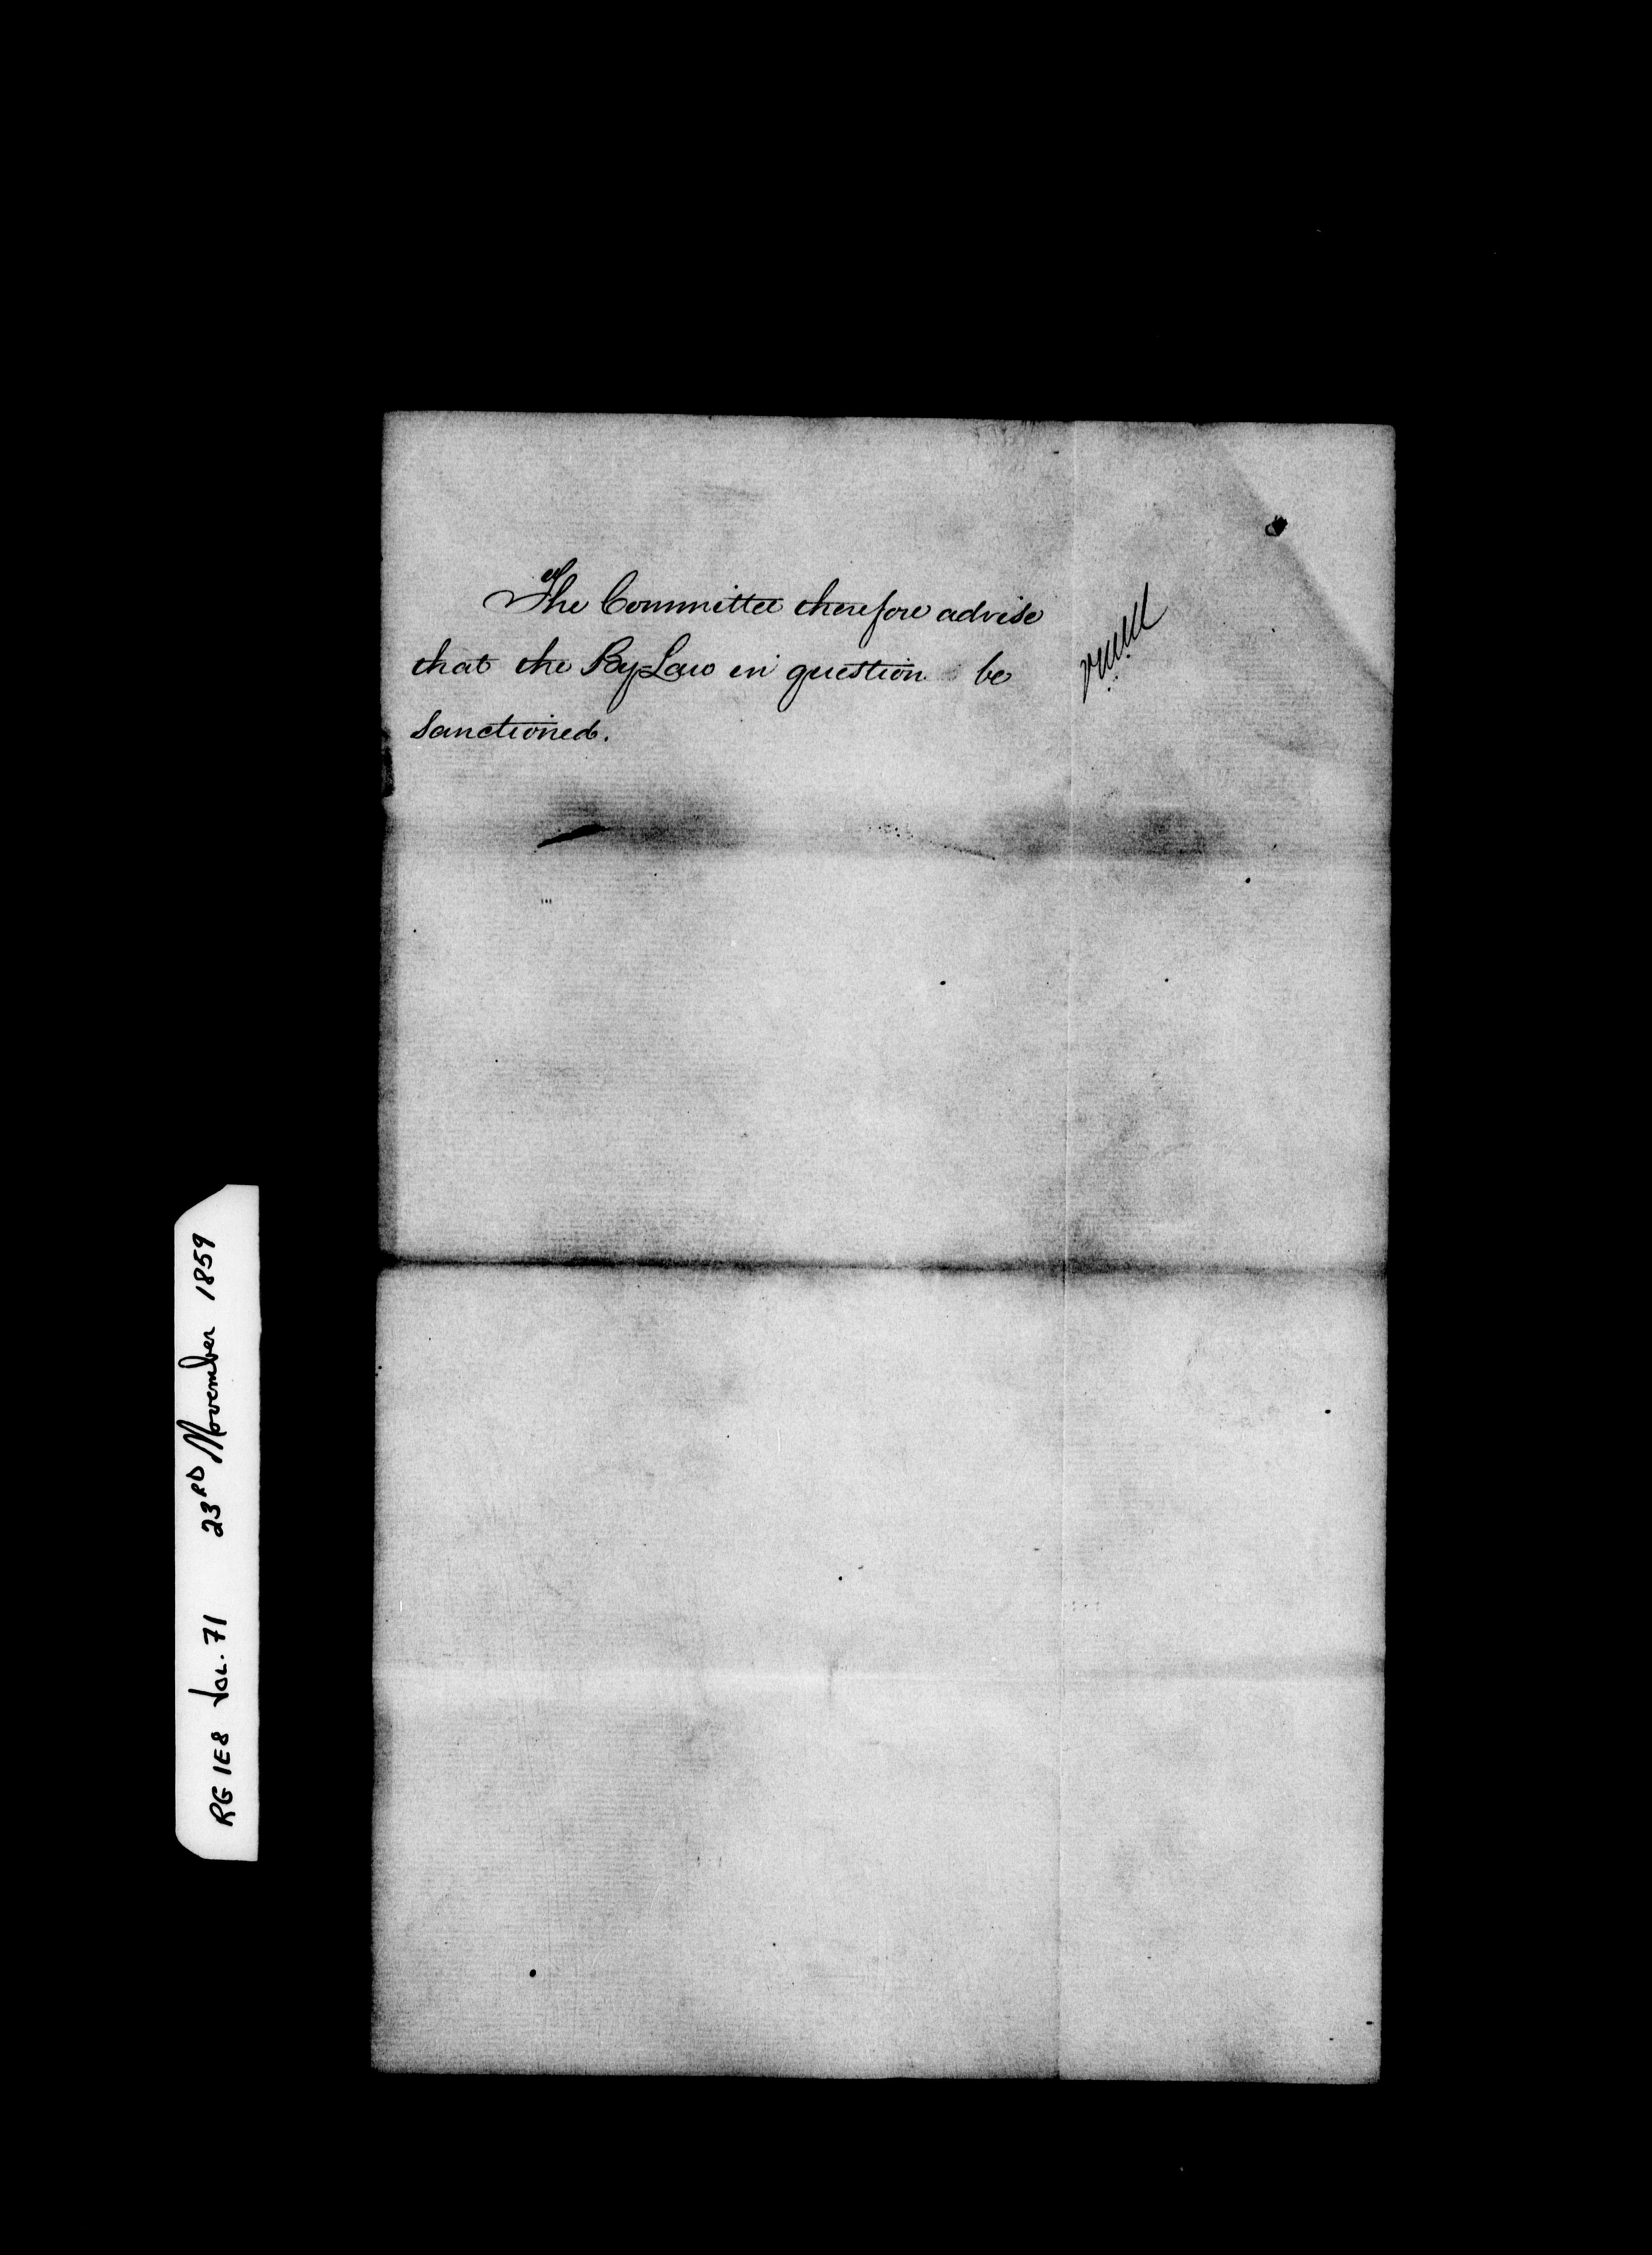 The Committee therefore advise
that the By-Law in question be
sanctioned.
RG 1E8 Vol. 71 23RD November 1859